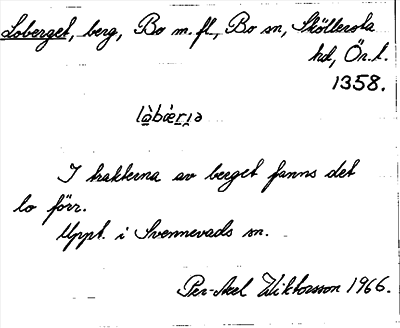 Loberget, berg, Bo m.fl., Bo sn, Sköllersta
hd, Ör. l.
1358.
lò̱bǽr̲ı̲ə
I trakterna av berget fanns det
lo förr.
Uppt. i Svennevads sn.
Per-Axel Wiktorsson 1966.